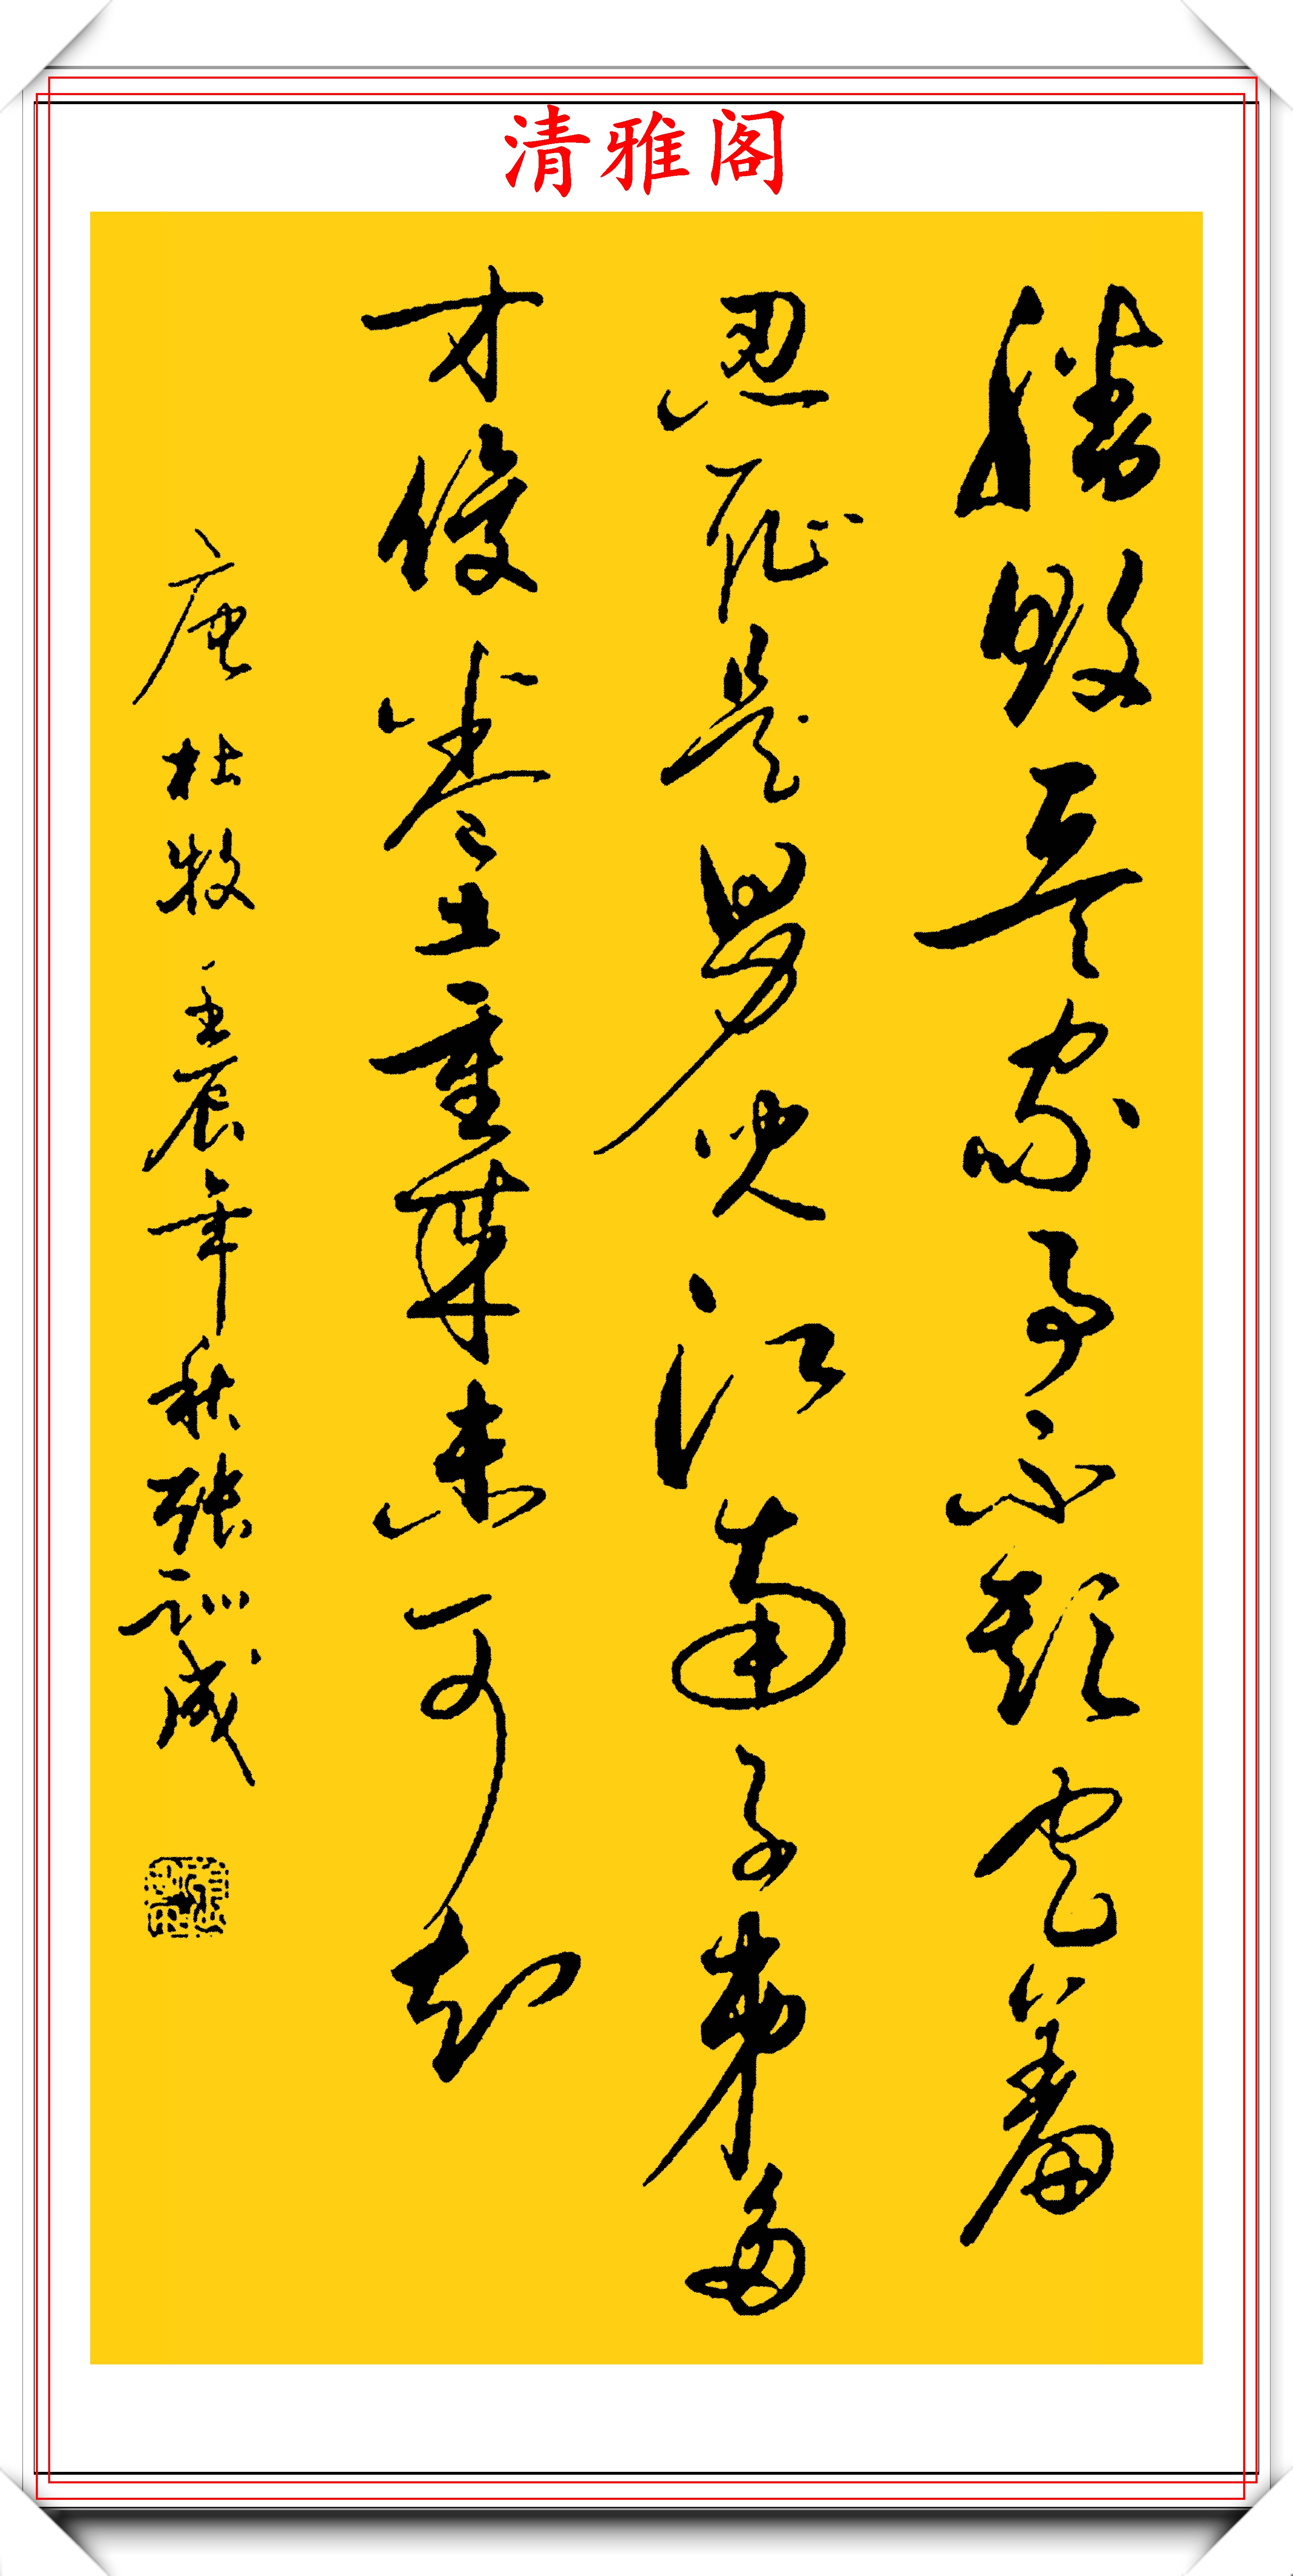 清雅阁
勝敗兵家事不期包羞
忍耻是男兒江南子弟多
才俊卷土重来未可知
唐杜牧壬辰年秋張訓成